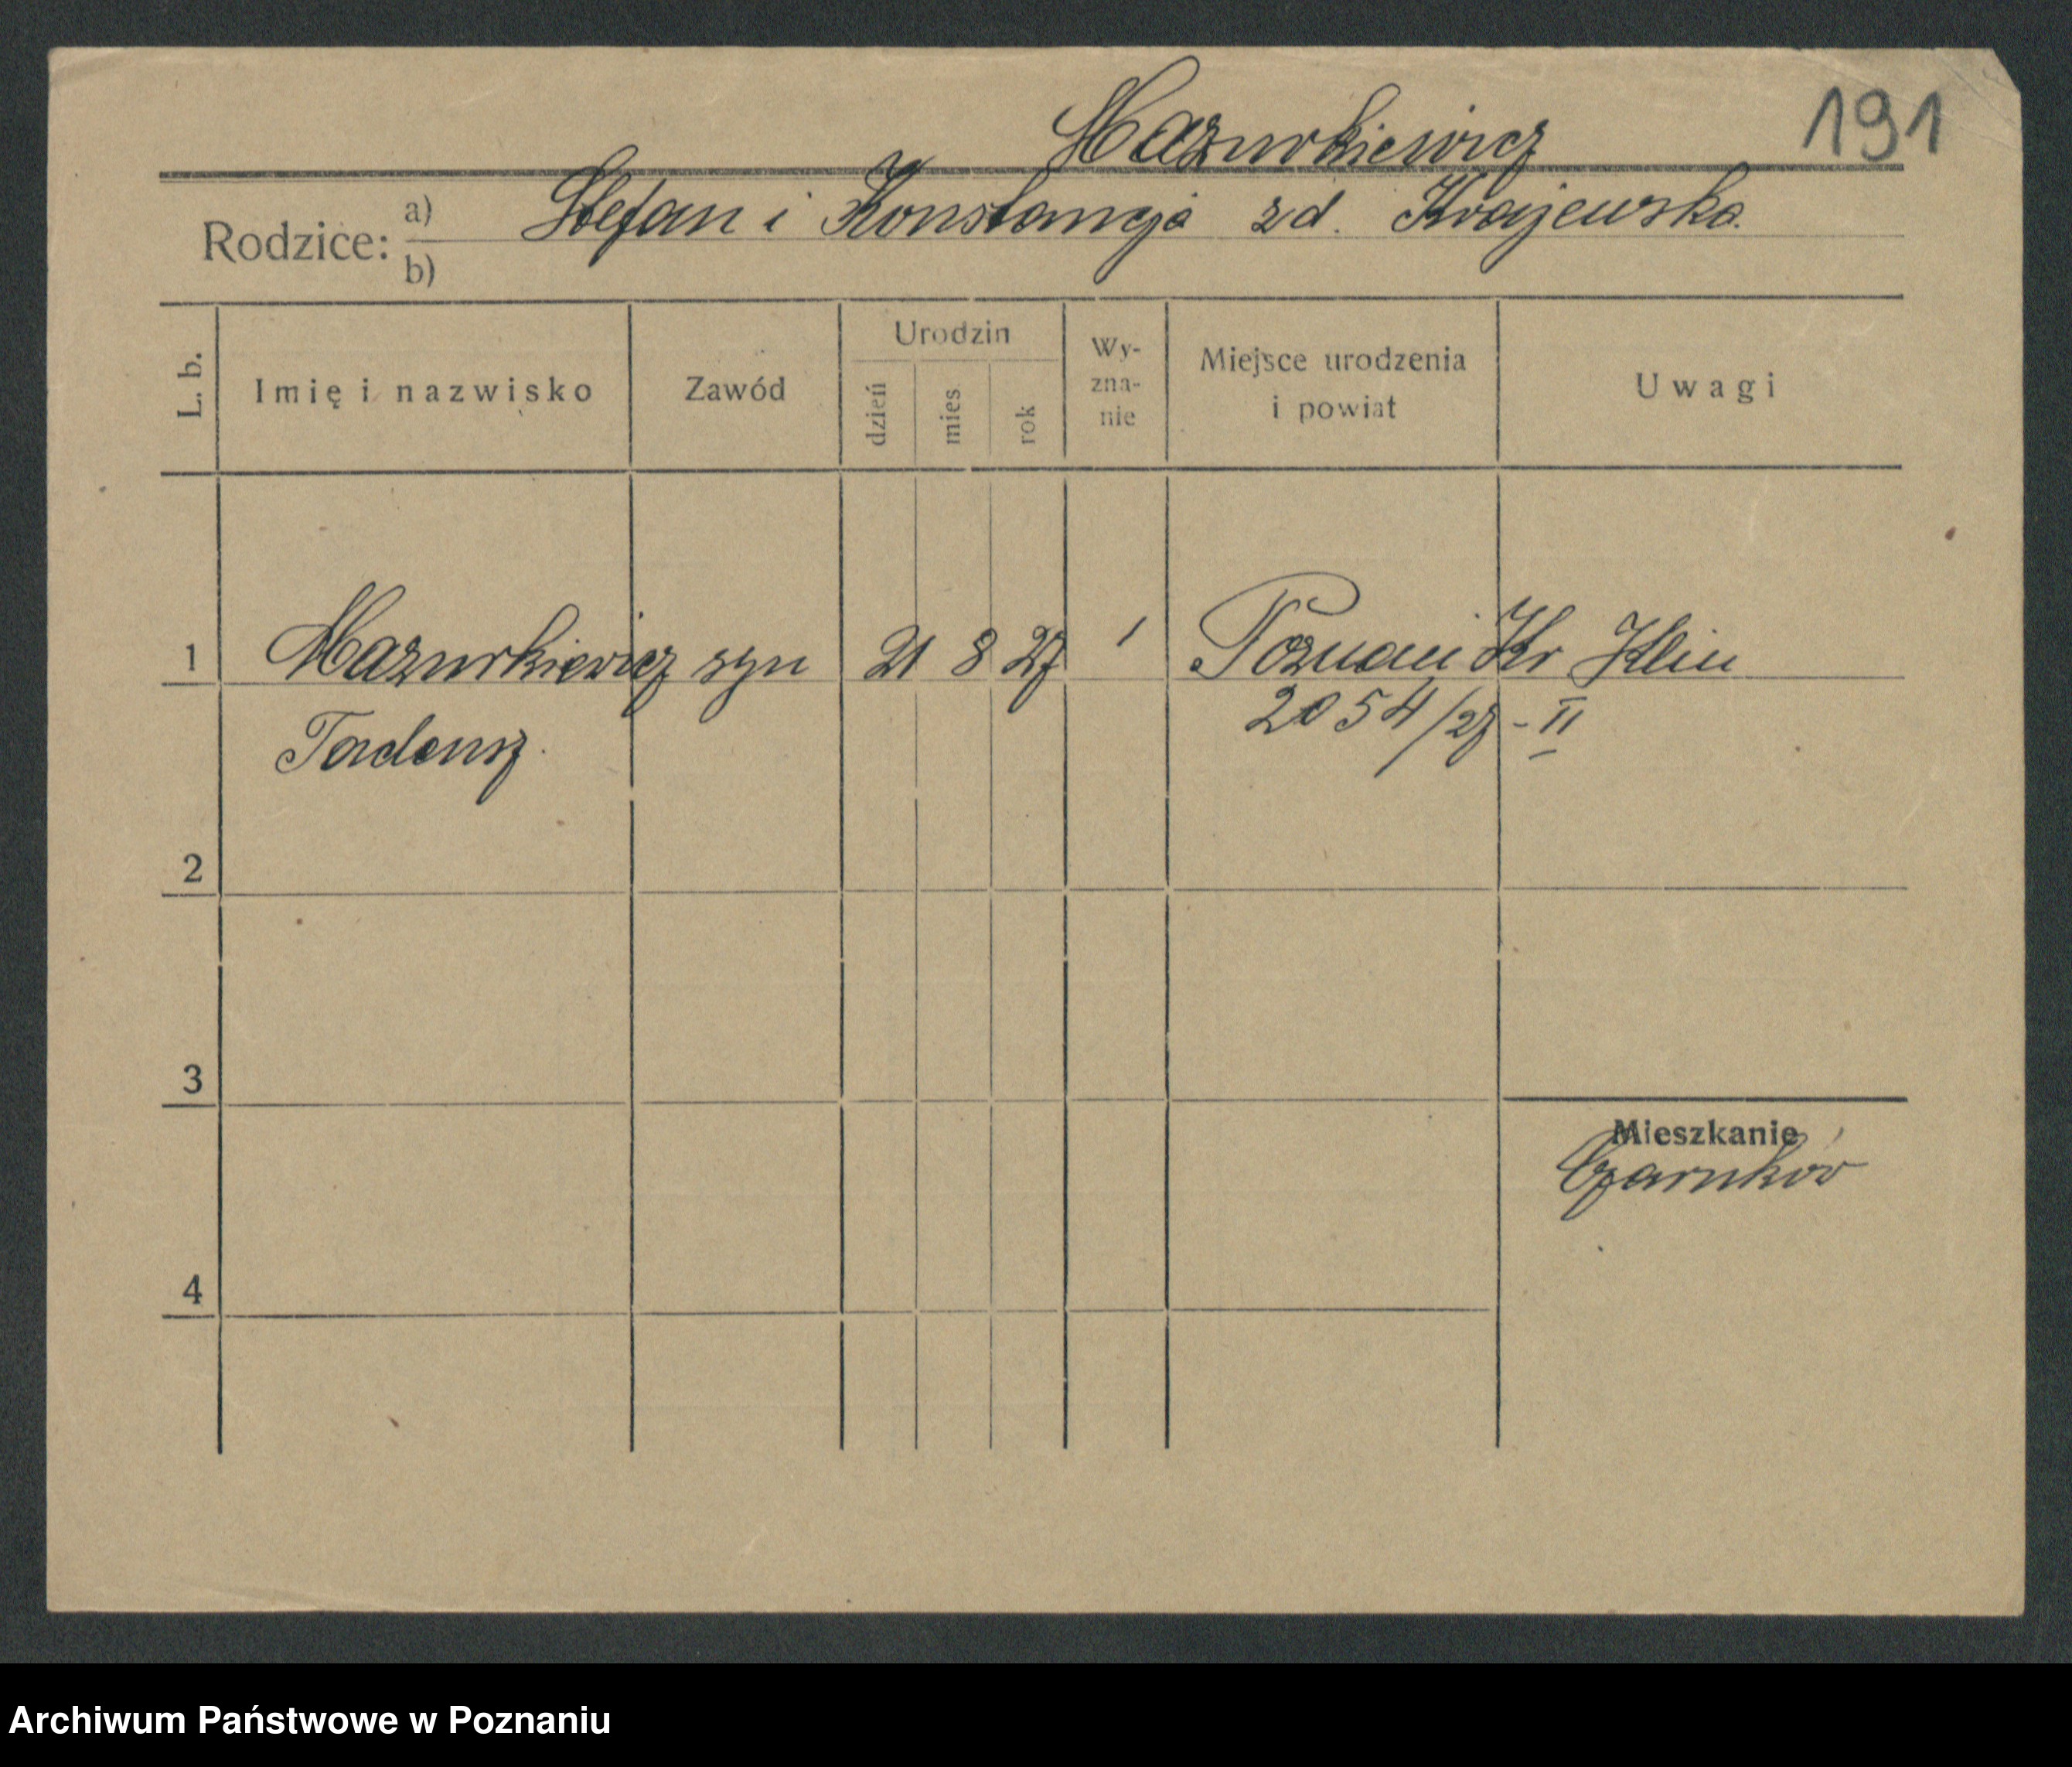 191
Mazurkiewicz
Rodzice: a) Stefan i Konstancja zd. Krajewska.
b)
L. b. Imię i nazwisko Zawód Urodzin dzień mies. rok Wy-zna-nie Miejsce urodzenia i powiat Uwagi
1 Mazurkiewicz syn 21 8 27 / Poznań Kr Klin
Tadeusz. 2054/27-II
2
3
Mieszkanie
Czarnków
4
Archiwum Państwowe w Poznaniu